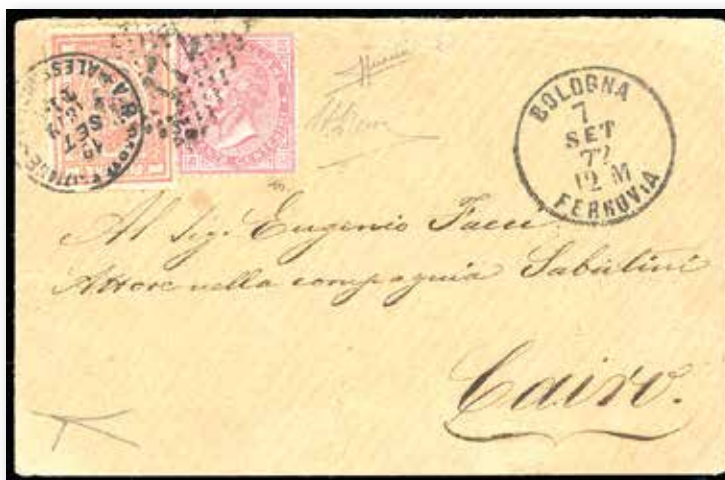 BOLOGNA
7
SET
77
12 M
FERROVIA
Al Sig. Eugenio Facci
Attore nella compagnia Sabatini
Cairo.